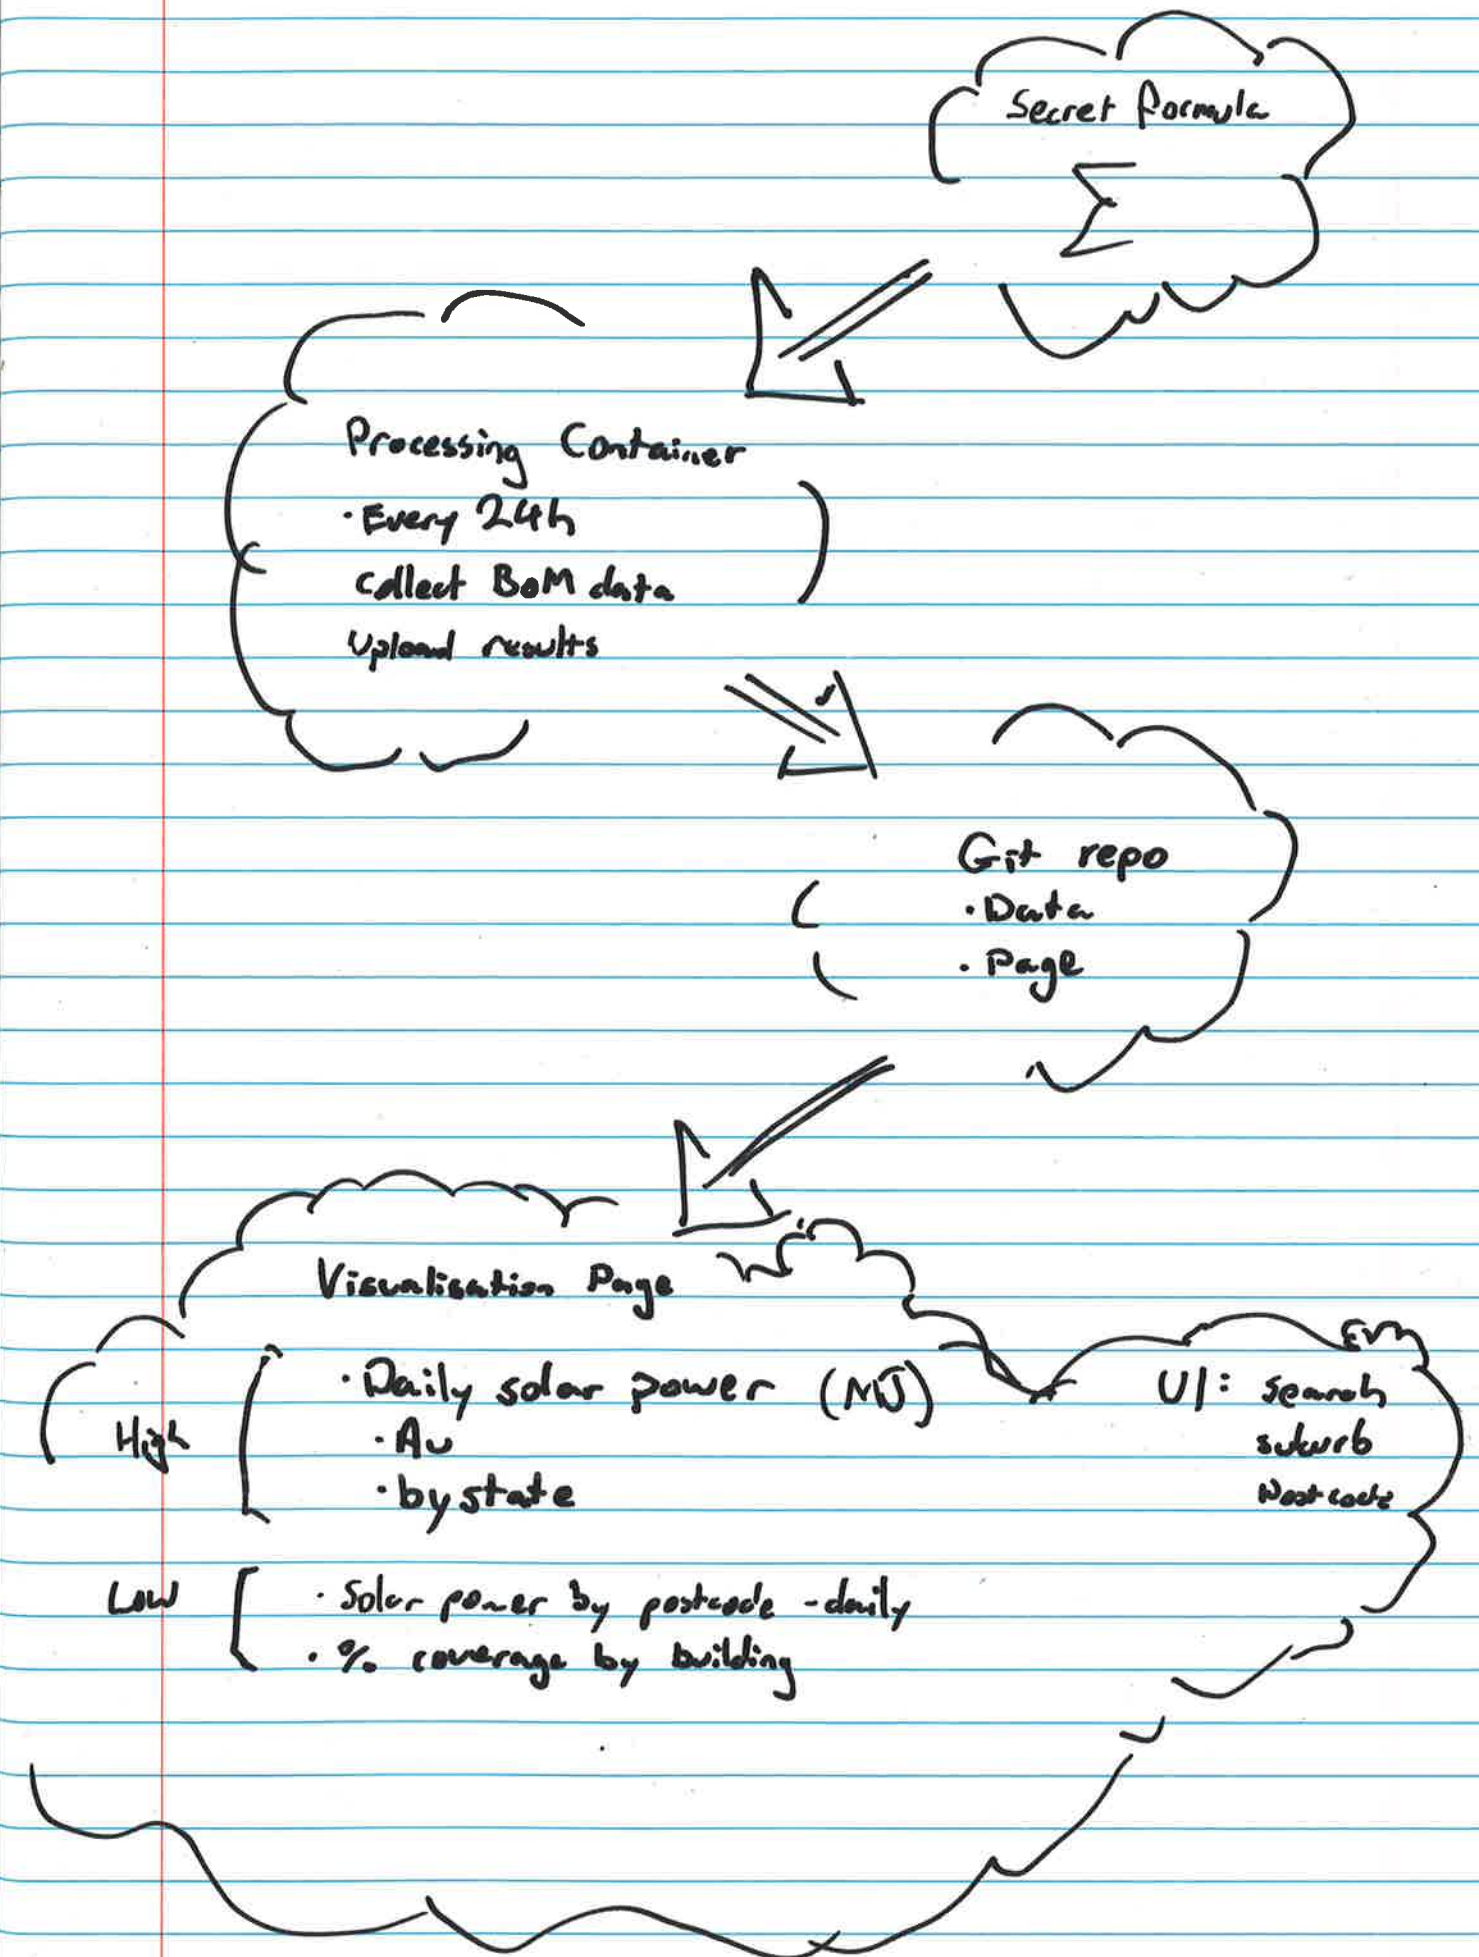 Secret formula
Σ
Processing Container
· Every 24h
collect BoM data
Upload results
Git repo
· Data
· Page
Visualisation Page
High
· Daily solar power (MJ)
· Au
· by state
UI: search
suburb
Postcode
Low
· Solar power by postcode - daily
· % coverage by building